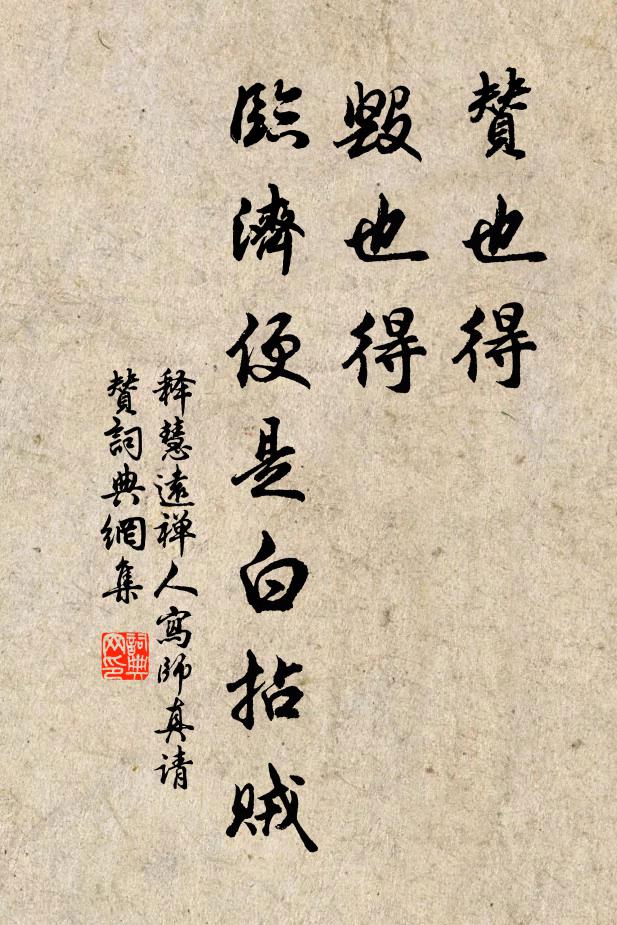 賛也得
毀也得
臨濟便是白拈賊
释慧遠禅人寫師真请
賛詞典網集
詞典
网印